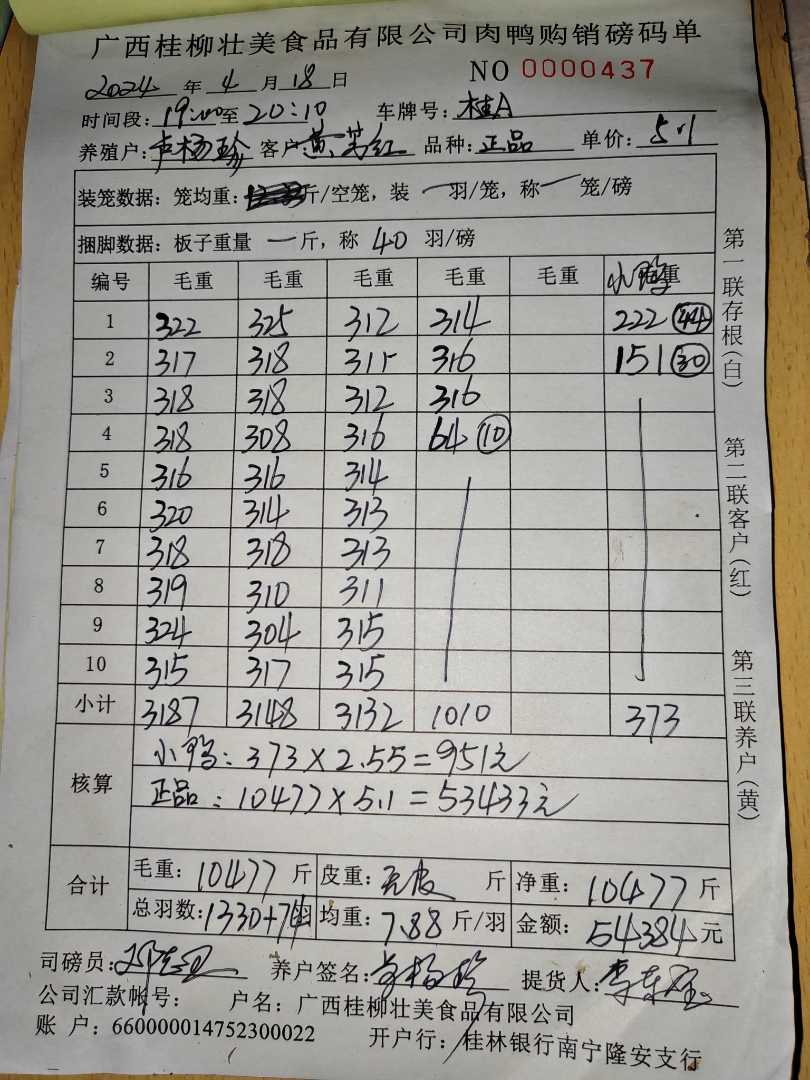 广西桂柳壮美食品有限公司肉鸭购销磅码单
2024 年 4 月 18 日 NO 0000437
时间段: 19:00 至 20:10 车牌号: 桂A
养殖户: 卢杨珍 客户 黄 红 品种: 正品 单价: 5.1
装笼数据: 笼均重: 斤/空笼, 装 一 羽/笼, 称 一 笼/磅
捆脚数据: 板子重量 一 斤, 称 40 羽/磅
编号 毛重 毛重 毛重 毛重 毛重 小鸭 重
1 322 325 312 314 222 44
2 317 318 311 316 151 30
3 318 318 312 316
4 318 308 316 64 10
5 316 316 314
6 320 314 313
7 318 318 313
8 319 310 311
9 324 304 315
10 315 317 315
小计 3187 3148 3132 1010 373
核算
小鸭: 373×2.55=951元
正品: 10477×5.1=53433元
合计
毛重: 10477 斤 皮重: 无皮 斤 净重: 10477 斤
总羽数: 1330+74羽 均重: 7.88 斤/羽 金额: 54384 元
司磅员: 养户签名: 卢杨珍 提货人: 李
公司汇款帐号: 户名: 广西桂柳壮美食品有限公司
账 户: 660000014752300022 开户行: 桂林银行南宁隆安支行
第一联存根(白)
第二联客户(红)
第三联养户(黄)